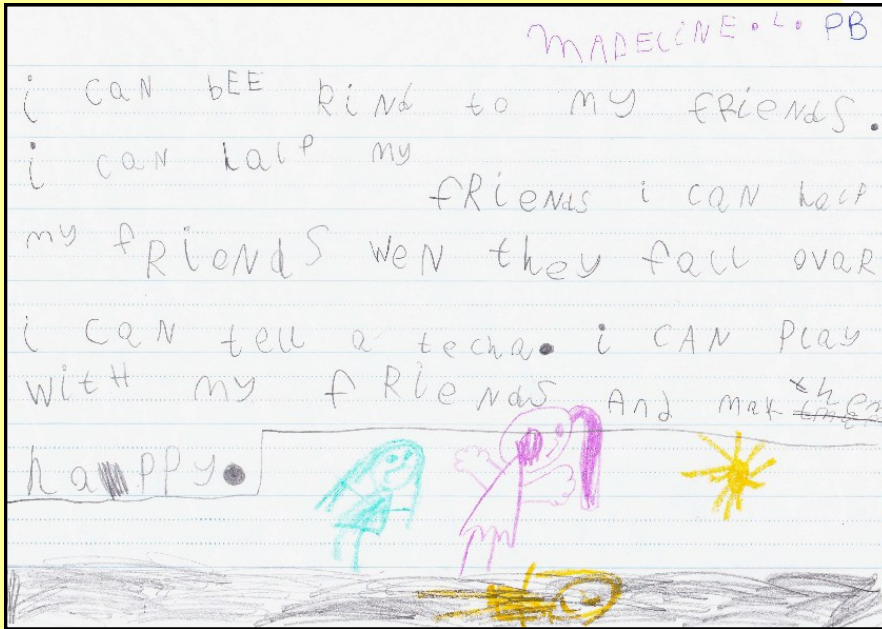 MADELINE.L. PB
i CaN bEE kiNd to my fRieNdS.
i caN halp my
fRieNds i caN halp
my fRieNdS weN they fall ovaR
i CaN tell a techa. i CAN Play
witH my fRieNdS And mak them
happy.